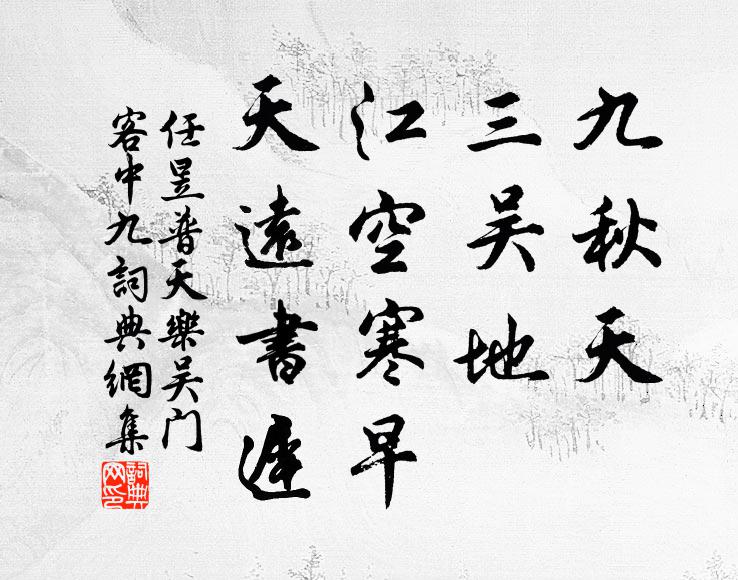 九秋天
三吴地
江空寒早
天遠書遲
任昱普天樂吴门
客中九詞典網集
詞典
网印